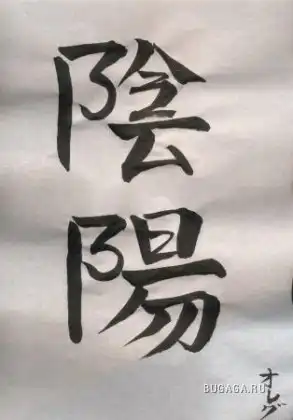 陰
陽
オレグ
BUGAGA.RU